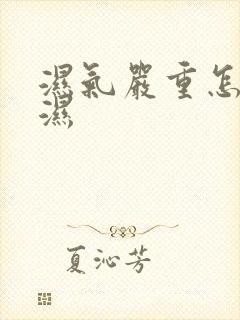 濕氣嚴重怎
濕
夏沁芳